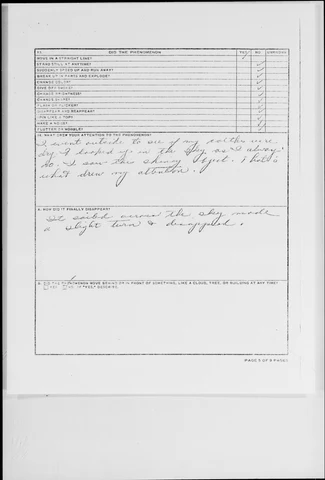 DID THE PHENOMENON YES NO UNKNOWN
MOVE IN A STRAIGHT LINE?
STAND STILL AT ANYTIME?
SUDDENLY SPEED UP AND RUN AWAY?
BREAK UP IN PARTS AND EXPLODE?
CHANGE COLOR?
GIVE OFF SMOKE?
CHANGE BRIGHTNESS?
CHANGE SHAPE?
FLASH OR FLICKER?
DISAPPEAR AND REAPPEAR?
SPIN LIKE A TOP?
MAKE A NOISE?
FLUTTER OR WOBBLE?
WHAT DREW YOUR ATTENTION TO THE PHENOMENON?
I went outside to see if my clothes were
dry I looked up in the sky as I always
do. I saw this shiny object. That is
what drew my attention.
A. HOW DID IT FINALLY DISAPPEAR?
It sailed across the sky made
a slight turn & disappeared.
DID THE PHENOMENON MOVE BEHIND OR IN FRONT OF SOMETHING, LIKE A CLOUD, TREE, OR BUILDING AT ANY TIME?
YES NO IF YES, DESCRIBE.
PAGE 5 OF 9 PAGES